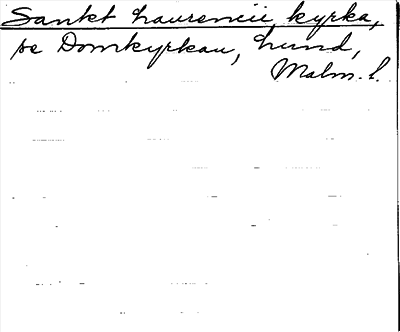 Sankt Laurencii kyrka,
se Domkyrkan, Lund,
Malm. l.